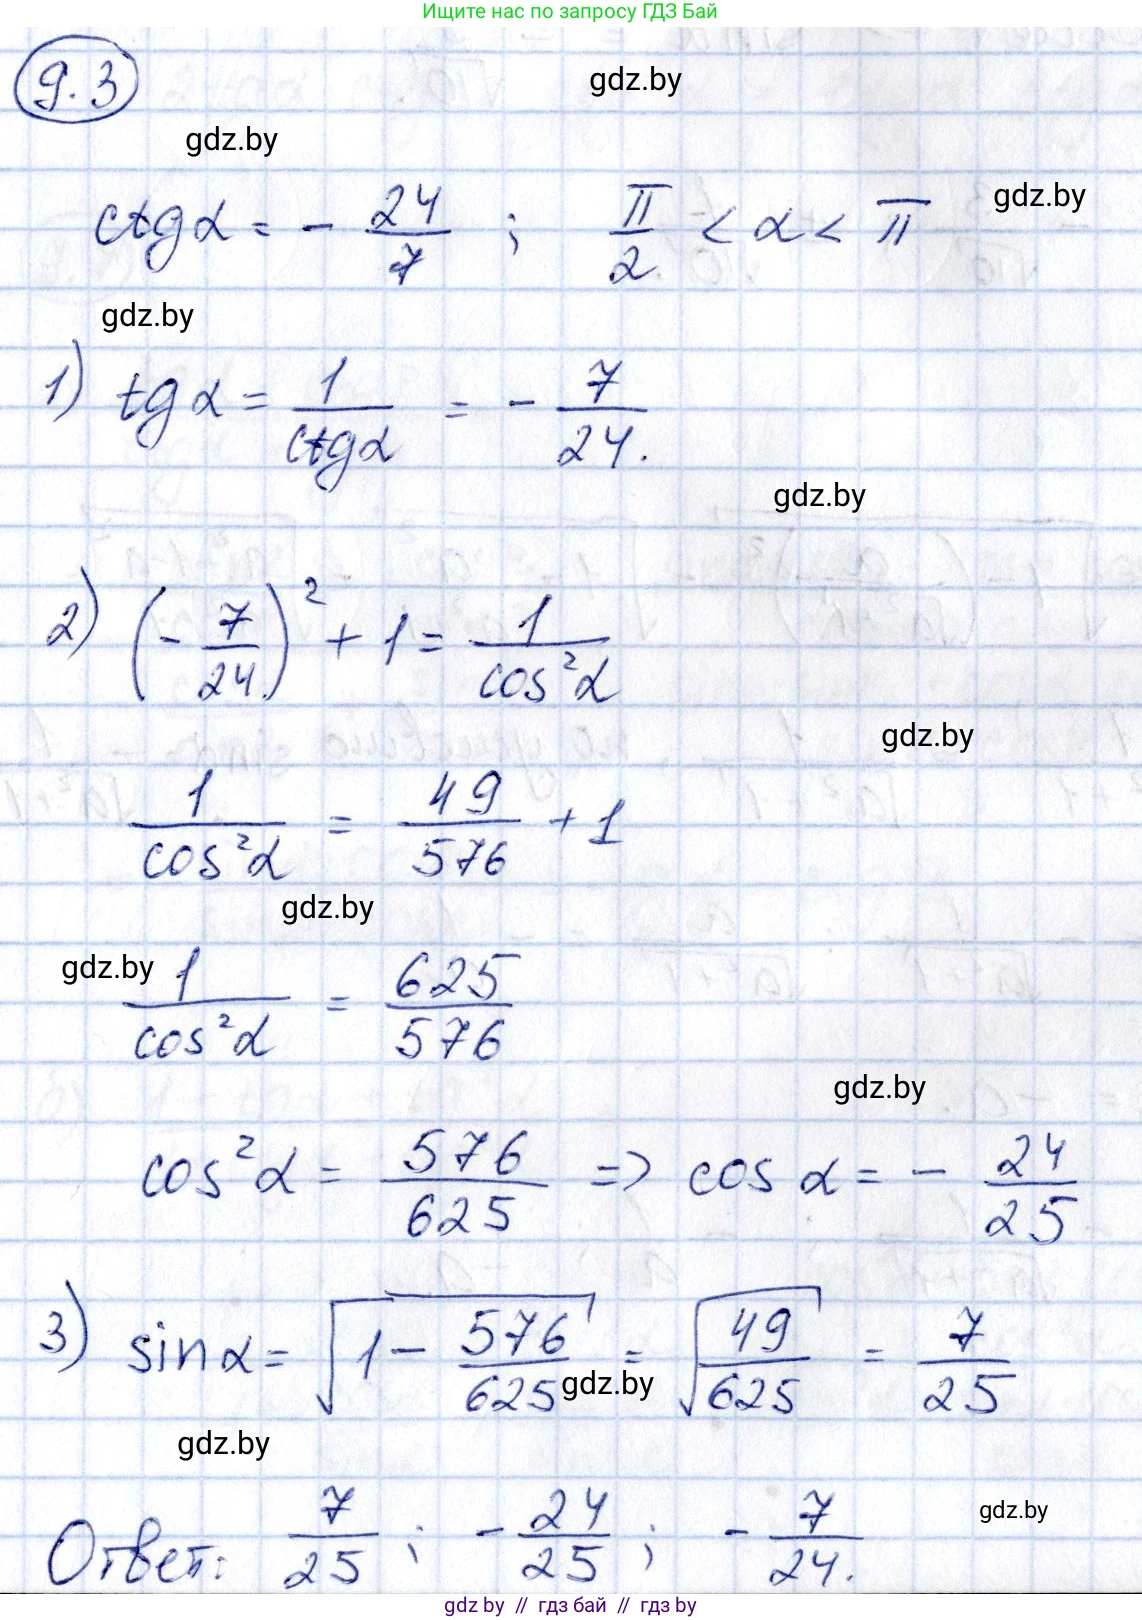 Ищите нас по запросу ГДЗ Бай
9.3
gdz.by
gdz.by
ctgα = - 24/7 ; π/2 < α < π
gdz.by
gdz.by
1) tgα = 1/ctgα = - 7/24.
gdz.by
2) (- 7/24)² + 1 = 1/cos²α
gdz.by
1/cos²α = 49/576 + 1
gdz.by
gdz.by
1/cos²α = 625/576
gdz.by
cos²α = 576/625 => cos α = - 24/25
3) sinα = √(1 - 576/625) = √(49/625) = 7/25
gdz.by
gdz.by
gdz.by
Ответ: 7/25 ; - 24/25 ; - 7/24.
gdz by // гдз бай // гдз by